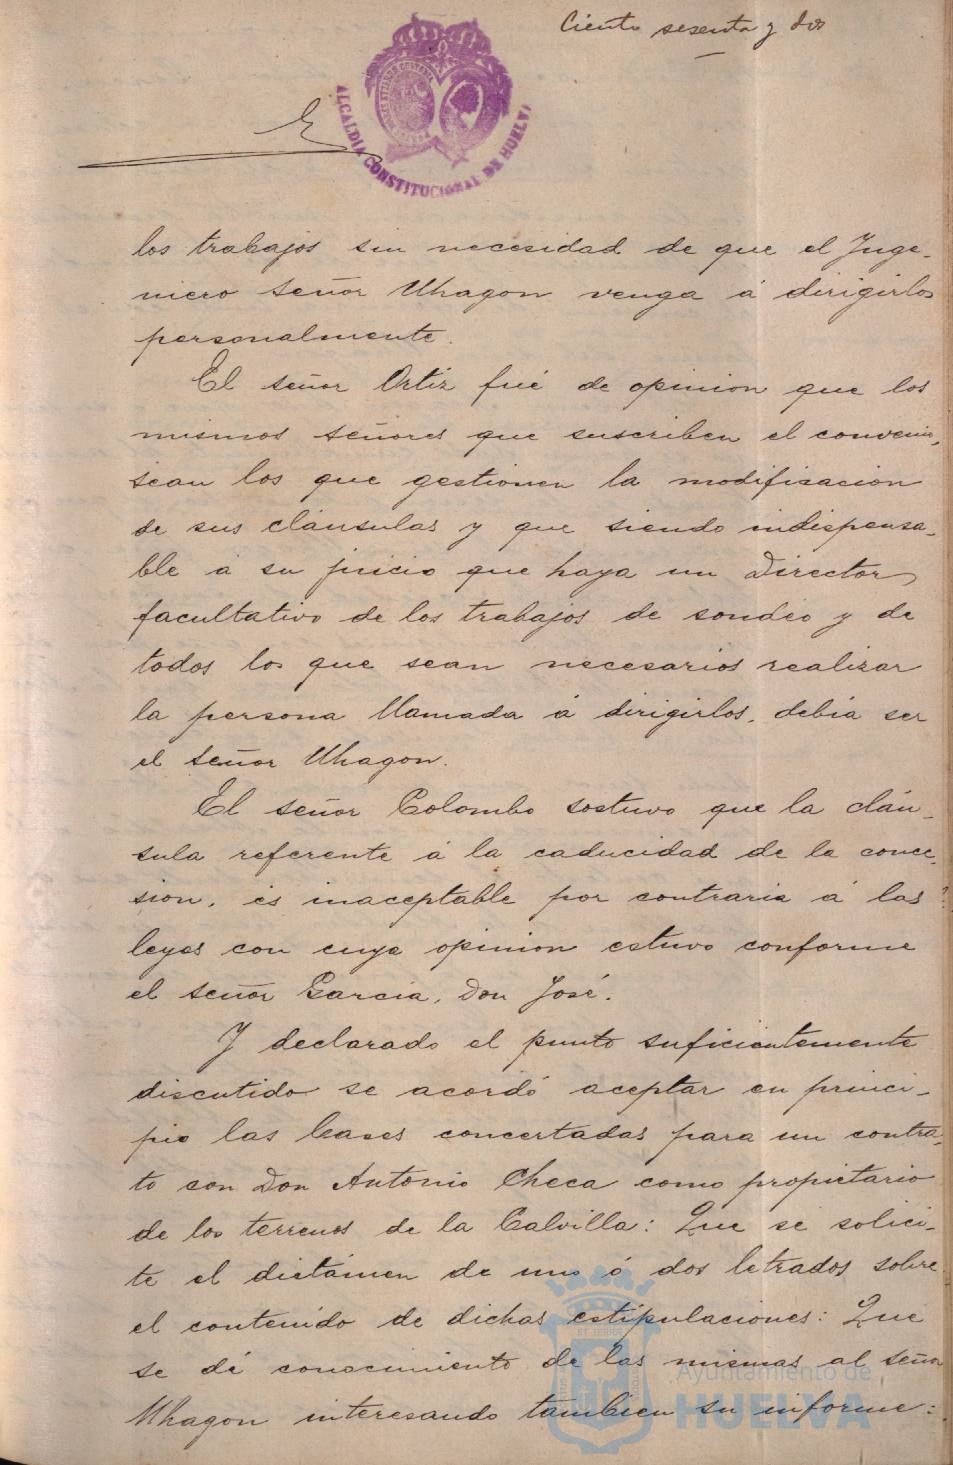 Ciento sesenta y dos
ALCALDIA CONSTITUCIONAL DE HUELVA
los trabajos sin necesidad de que el Inge-
niero señor Uhagon venga á dirigirlos
personalmente.
El señor Ortiz fué de opinion que los
mismos señores que suscriben el convenio,
sean los que gestionen la modificacion
de sus cláusulas y que siendo indispensa-
ble á su juicio que haya un Director
facultativo de los trabajos de sondéo y de
todos los que sean necesarios realizar
la persona llamada á dirigirlos, debía ser
el señor Uhagon.
El señor Colombo sostuvo que la cláu-
sula referente á la caducidad de la conce-
sion, és inaceptable por contraria á las
leyes con cuya opinion estuvo conforme
el señor García, Don José.
Y declarado el punto suficientemente
discutido se acordó aceptar en princi-
pio las bases concertadas para un contra-
to con Don Antonio Checa como propietario
de los terrenos de la Calvilla: Que se solici-
te el dictámen de uno ó dos letrados sobre
el contenido de dichas estipulaciones: Que
se dé conocimiento de las mismas al señor
Uhagon interesando tambien su informe:
Ayuntamiento de
HUELVA